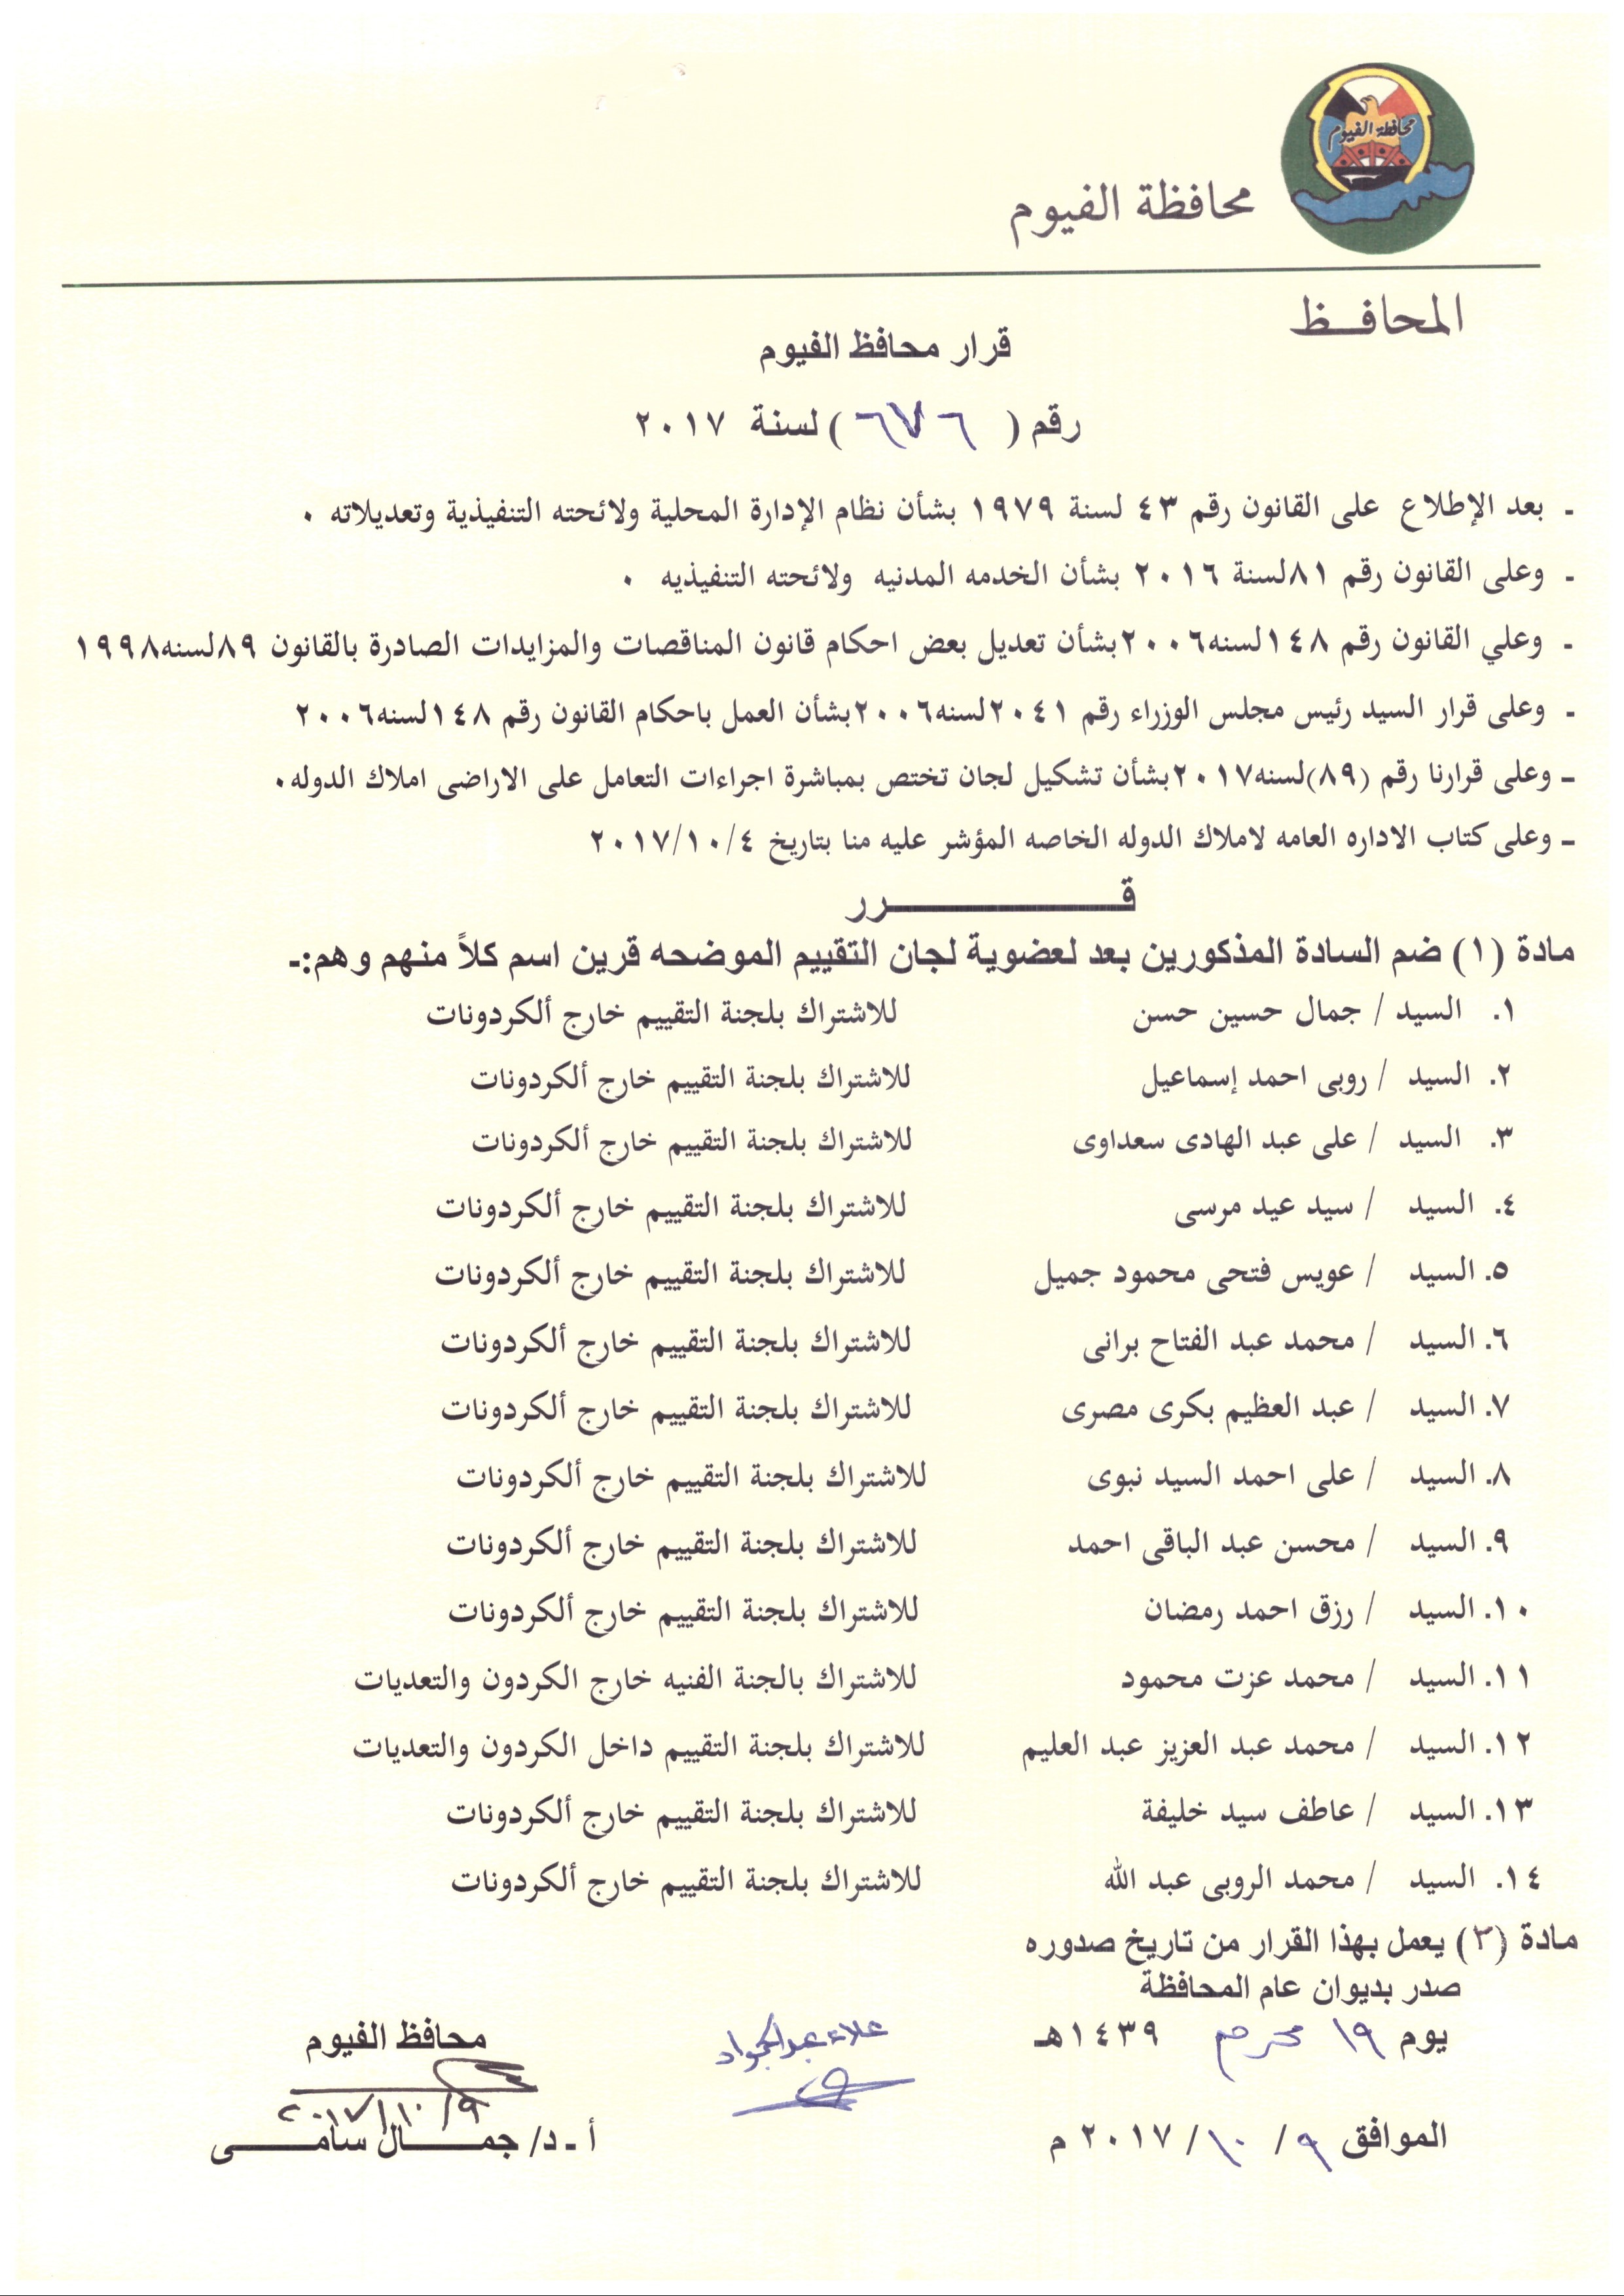 محافظة الفيوم
محافظة الفيوم
المحافـــظ
قرار محافظ الفيوم
رقم ( ٦٧٦ ) لسنة ٢٠١٧
- بعد الإطلاع على القانون رقم ٤٣ لسنة ١٩٧٩ بشأن نظام الإدارة المحلية ولائحته التنفيذية وتعديلاته ٠
- وعلى القانون رقم ٨١لسنة ٢٠١٦ بشأن الخدمه المدنيه ولائحته التنفيذيه ٠
- وعلي القانون رقم ١٤٨لسنه٢٠٠٦بشأن تعديل بعض احكام قانون المناقصات والمزايدات الصادرة بالقانون ٨٩لسنه١٩٩٨
- وعلى قرار السيد رئيس مجلس الوزراء رقم ٢٠٤١لسنه٢٠٠٦بشأن العمل باحكام القانون رقم ١٤٨لسنه٢٠٠٦
- وعلى قرارنا رقم (٨٩)لسنه٢٠١٧بشأن تشكيل لجان تختص بمباشرة اجراءات التعامل على الاراضى املاك الدوله٠
- وعلى كتاب الاداره العامه لاملاك الدوله الخاصه المؤشر عليه منا بتاريخ ٢٠١٧/١٠/٤
قــــــــــرر
مادة (١) ضم السادة المذكورين بعد لعضوية لجان التقييم الموضحه قرين اسم كلاً منهم وهم:-
١. السيد / جمال حسين حسن للاشتراك بلجنة التقييم خارج ألكردونات
٢. السيد / روبى احمد إسماعيل للاشتراك بلجنة التقييم خارج ألكردونات
٣. السيد / على عبد الهادى سعداوى للاشتراك بلجنة التقييم خارج ألكردونات
٤. السيد / سيد عيد مرسى للاشتراك بلجنة التقييم خارج ألكردونات
٥. السيد / عويس فتحى محمود جميل للاشتراك بلجنة التقييم خارج ألكردونات
٦. السيد / محمد عبد الفتاح برانى للاشتراك بلجنة التقييم خارج ألكردونات
٧. السيد / عبد العظيم بكرى مصرى للاشتراك بلجنة التقييم خارج ألكردونات
٨. السيد / على احمد السيد نبوى للاشتراك بلجنة التقييم خارج ألكردونات
٩. السيد / محسن عبد الباقى احمد للاشتراك بلجنة التقييم خارج ألكردونات
١٠. السيد / رزق احمد رمضان للاشتراك بلجنة التقييم خارج ألكردونات
١١. السيد / محمد عزت محمود للاشتراك بالجنة الفنيه خارج الكردون والتعديات
١٢. السيد / محمد عبد العزيز عبد العليم للاشتراك بلجنة التقييم داخل الكردون والتعديات
١٣. السيد / عاطف سيد خليفة للاشتراك بلجنة التقييم خارج ألكردونات
١٤. السيد / محمد الروبى عبد الله للاشتراك بلجنة التقييم خارج ألكردونات
مادة (٣) يعمل بهذا القرار من تاريخ صدوره
صدر بديوان عام المحافظة
يوم ١٩ محرم ١٤٣٩هـ
علاء عبدالجواد
محافظ الفيوم
٢٠١٧/١٠/٩
الموافق ٩ /١٠ /٢٠١٧ م
أ - د/ جمـــال سامـــى